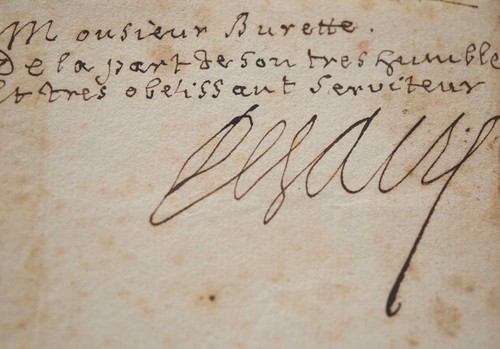 Monsieur Burette.
De la part de son tres humble
Et tres obeissant Serviteur